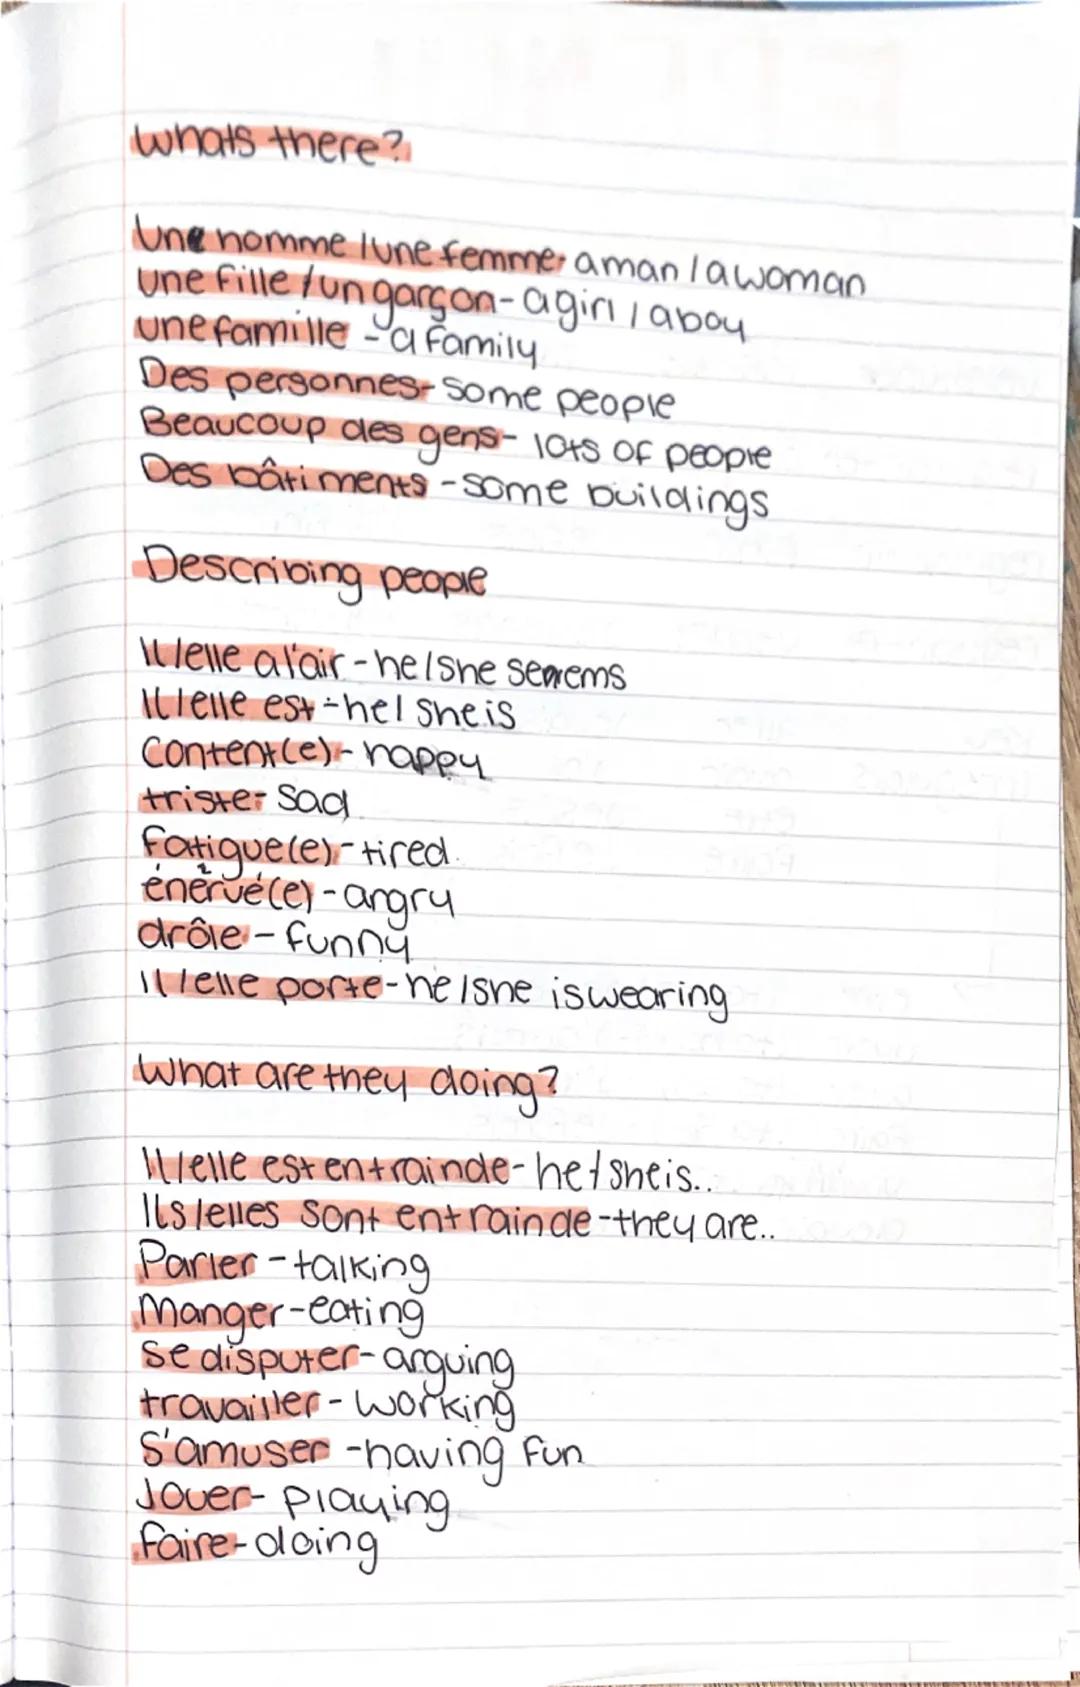 Whats there?
Une homme / une femme- a man / a woman
une fille / un garçon - a girl / a boy
une famille - a family
Des personnes- some people
Beaucoup des gens- lots of people
Des bâtiments - some buildings
Describing people
Il/elle a l'air - he/she seems
Il/elle est - he/she is
Content(e) - happy
triste- sad
fatigue(e)- tired.
énervé(e) - angry
drôle - funny
Il/elle porte- he/she is wearing
What are they doing?
Il/elle est en train de - he/she is..
Ils/elles sont en train de - they are..
Parler - talking
Manger - eating
Se disputer- arguing
travailler - working
S'amuser - having fun
Jouer- playing
faire- doing